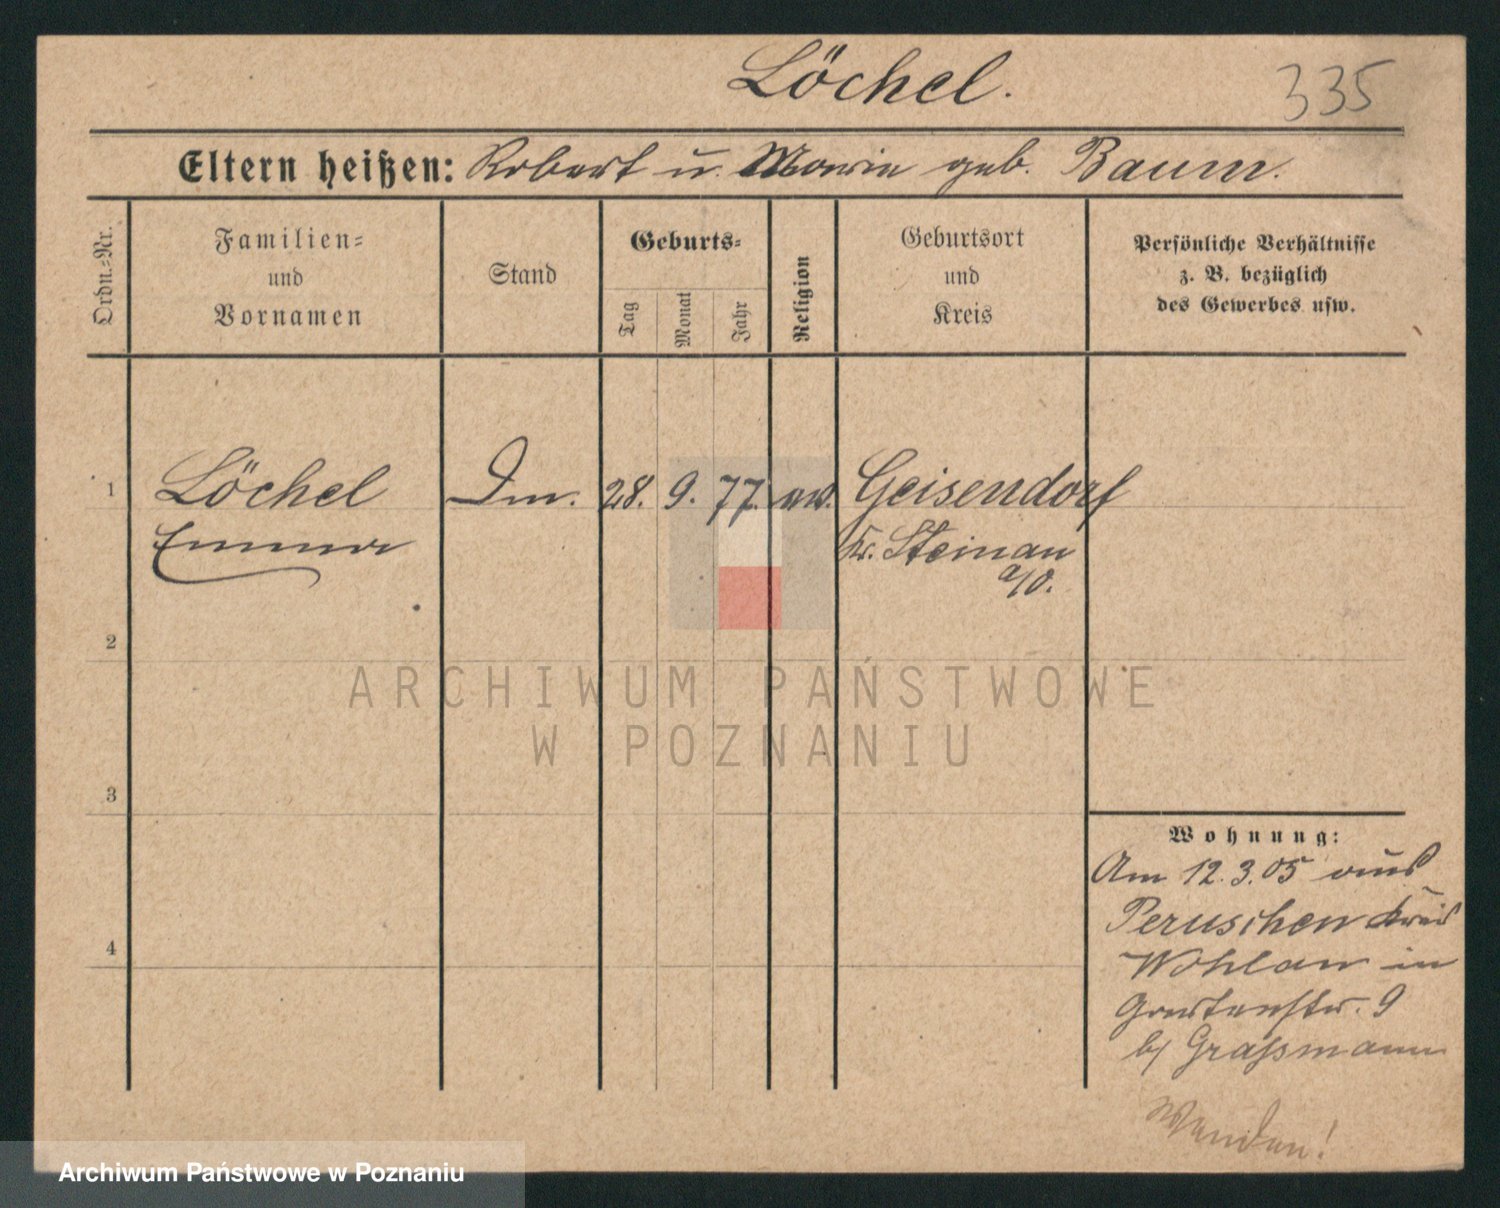 Löchel.
335
Eltern heißen: Robert u. Marie geb. Baum.
Ordn.-Nr.
Familien-
und
Vornamen
Stand
Geburts-
Tag
Monat
Jahr
Religion
Geburtsort
und
Kreis
Persönliche Verhältnisse
z. B. bezüglich
des Gewerbes usw.
1 Löchel 28. 9. 77. ev. Geisendorf
Emma Kr. Steinau
a/O.
2
3
4
Wohnung:
Am 12.3.05 aus
Peruschen Kreis
Wohlau in
Gartenstr. 9
b/ Graßmann
Wenden!
ARCHIWUM PAŃSTWOWE
W POZNANIU
Archiwum Państwowe w Poznaniu